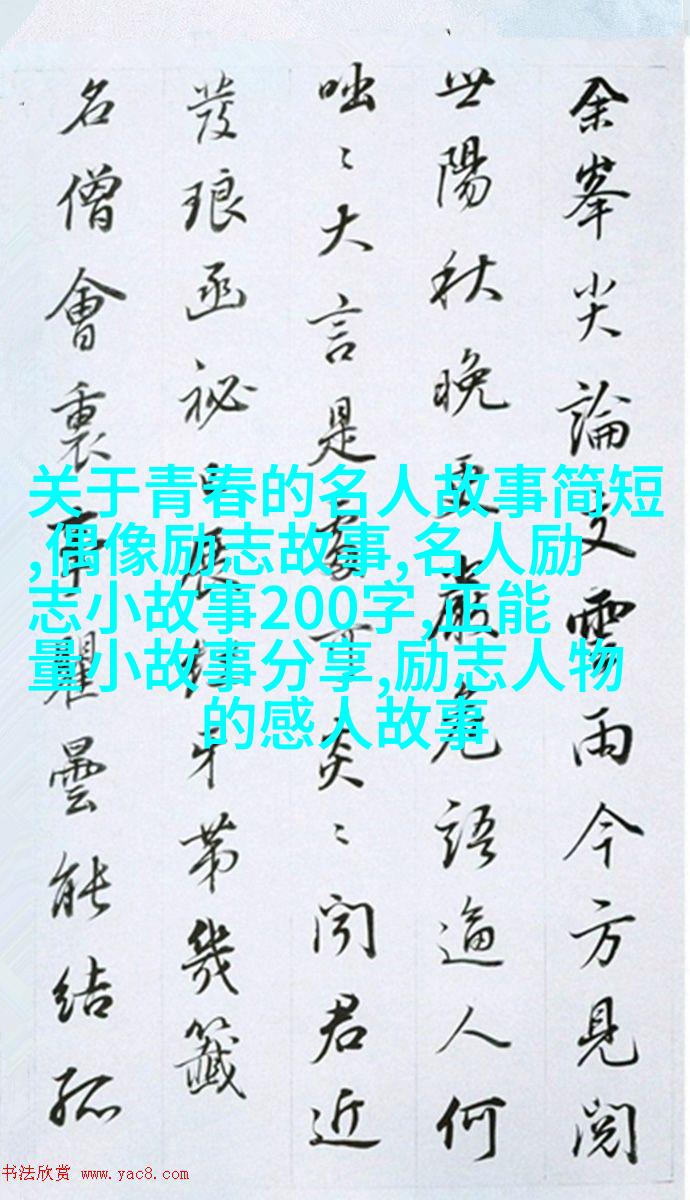 余峯尖論交雲雨今方見閱
世陽秋晚更嚴危語逼人何
咄〻大言是處可炎〻聞君近
發琅函祕自展經牙第幾籤
名僧會裏瞿曇能結孤
关于青春的名人故事简短
,偶像励志故事,名人励
志小故事200字,正能
量小故事分享,励志人物
的感人故事
书法欣赏 www.yac8.com